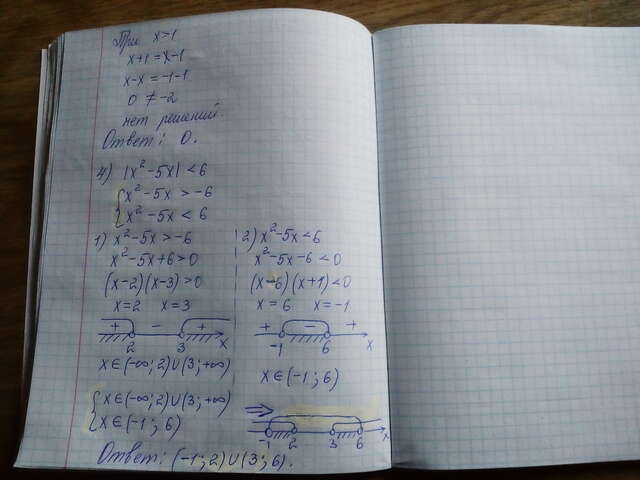 При x>1
x+1=x-1
x-x=-1-1
0 ≠ -2
нет решений
Ответ: 0.
4) |x²-5x|<6
{x²-5x > -6
x²-5x < 6
1) x²-5x>-6
x²-5x+6>0
(x-2)(x-3)>0
x=2 x=3
+ - +
2 3 x
x∈(-∞;2)∪(3;+∞)
2) x²-5x<6
x²-5x-6<0
(x-6)(x+1)<0
x=6 x=-1
+ - +
-1 6 x
x∈(-1;6)
{x∈(-∞;2)∪(3;+∞)
x∈(-1;6)
⇒
-1 2 3 6 x
Ответ: (-1;2)∪(3;6).